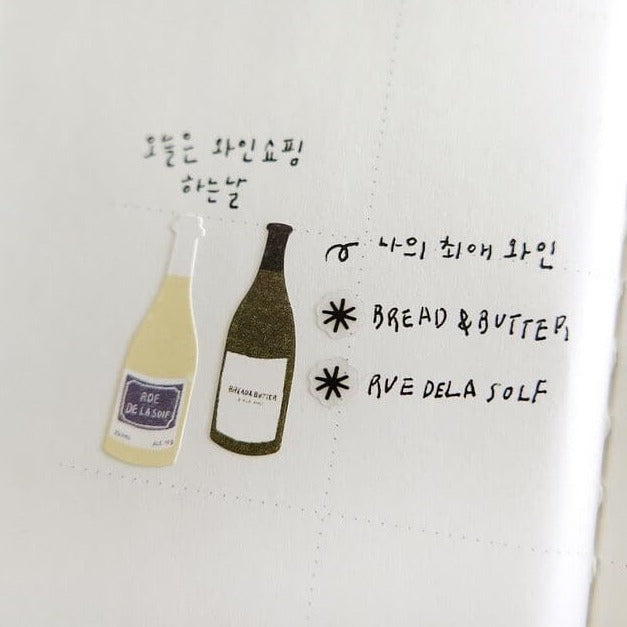 오늘은 와인쇼핑
하는날
나의 최애 와인
BREAD & BUTTER
RUE DELA SOLF
RDE
DE LA SOIF
BREAD&BUTTER